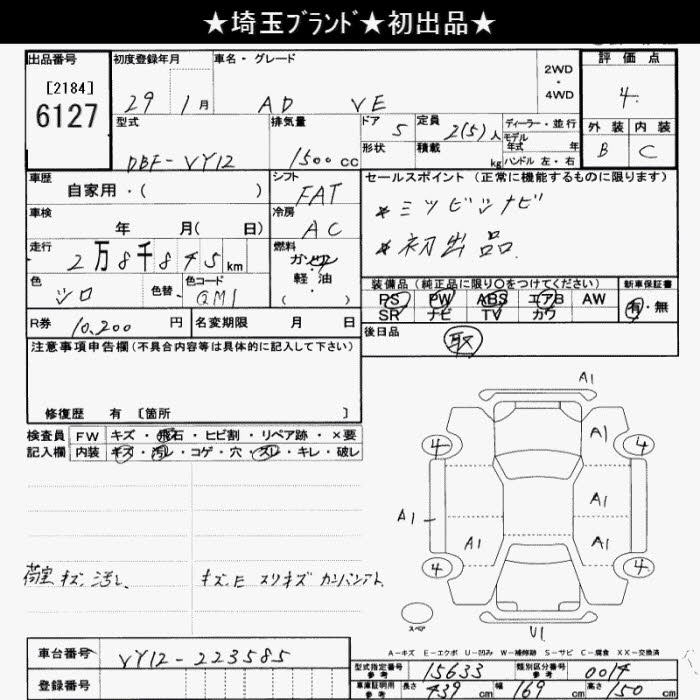 ★埼玉ﾌﾞﾗﾝﾄﾞ★初出品★
出品番号 初度登録年月 車名・グレード 2WD・4WD 評価点
[2184]
6127
29 1月 AD VE 4
型式 排気量 ドア 5 定員 2(5)人 ディーラー・並行 外装 内装
モデル年式 年
DBF-VY12 1500cc 形状 積載 kg ハンドル 左・右 B C
車歴 シフト セールスポイント (正常に機能するものに限ります)
自家用・( ) FAT *ミツビシナビ
車検 冷房
年 月( 日) AC *初出品
走行 燃料
2万8千845km ガソリン
軽・油
・( )
色 色替 色コード 装備品 (純正品に限り○をつけてください) 新車保証書
シロ QM1 PS PW ABS エアB AW 有・無
SR ナビ TV カワ
R券 10,200円 名変期限 月 日 後日品 取
注意事項申告欄 (不具合内容等は具体的に記入して下さい)
修復歴 有 [箇所 ]
検査員 FW キズ・飛石・ヒビ割・リペア跡・×要
記入欄 内装 キズ・汚レ・コゲ・穴・スレ・キレ・破レ
A1
4 A1 4
A1 A1
A1 A1
4 4
荷室キズ、汚レ、 キズ,E スリキズ カンバンアト
スペア U1
A―キズ E―エクボ U―凹み W―補修跡 S―サビ C―腐食 XX―交換済
車台番号 VY12-223585
型式指定番号 参考 15633 類別区分番号 参考 0014
登録番号 車庫証明用 参考 長さ 439cm 幅 169cm 高さ 150cm